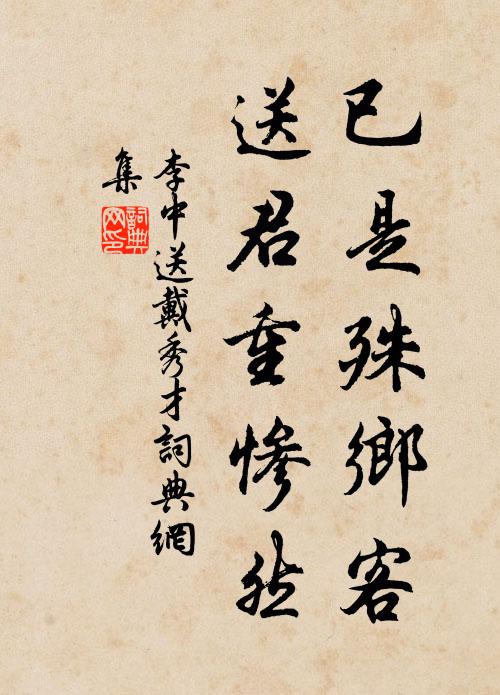 已是殊鄉客
送君重慘然
李中送戴秀才詞典網
集
詞典網印